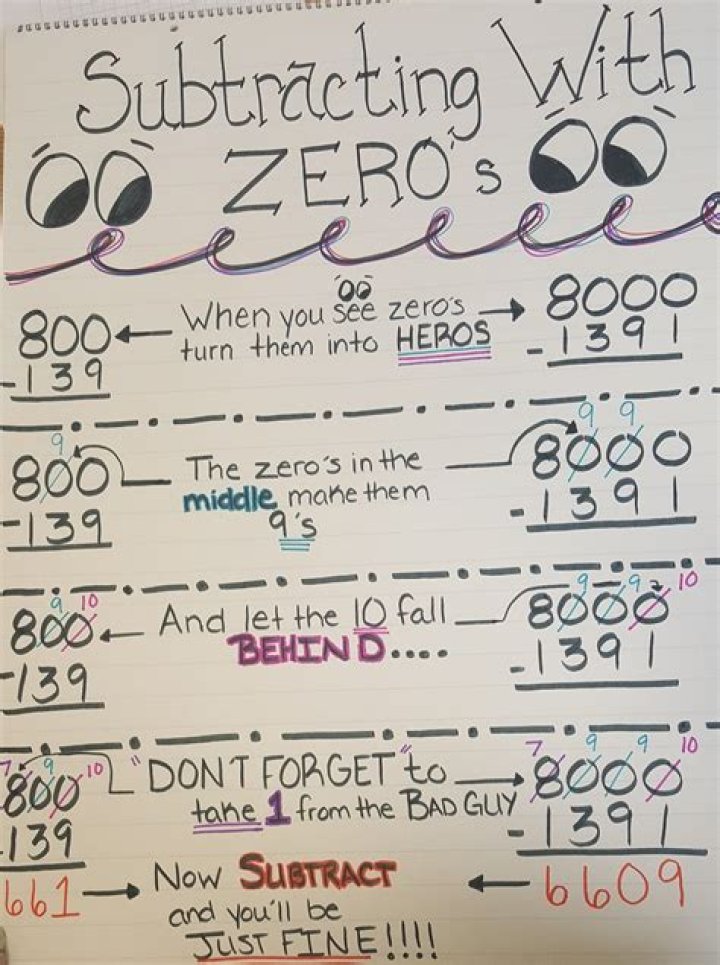 Subtracting With
ZERO's
800 When you see zero's 8000
-139 turn them into HEROS -1391
9 9 9
800 The zero's in the 8000
-139 middle make them -1391
9's
9 10 9 9 10
800 And let the 10 fall 8000
-139 BEHIND.... -1391
7 9 10 "DONT FORGET" to 7 9 9 10
800 take 1 from the BAD GUY 8000
-139 -1391
661 Now SUBTRACT 6609
and you'll be
JUST FINE!!!!